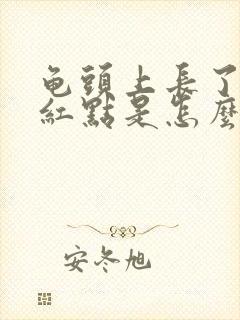 龟頭上長了
紅點是怎麼
安冬旭